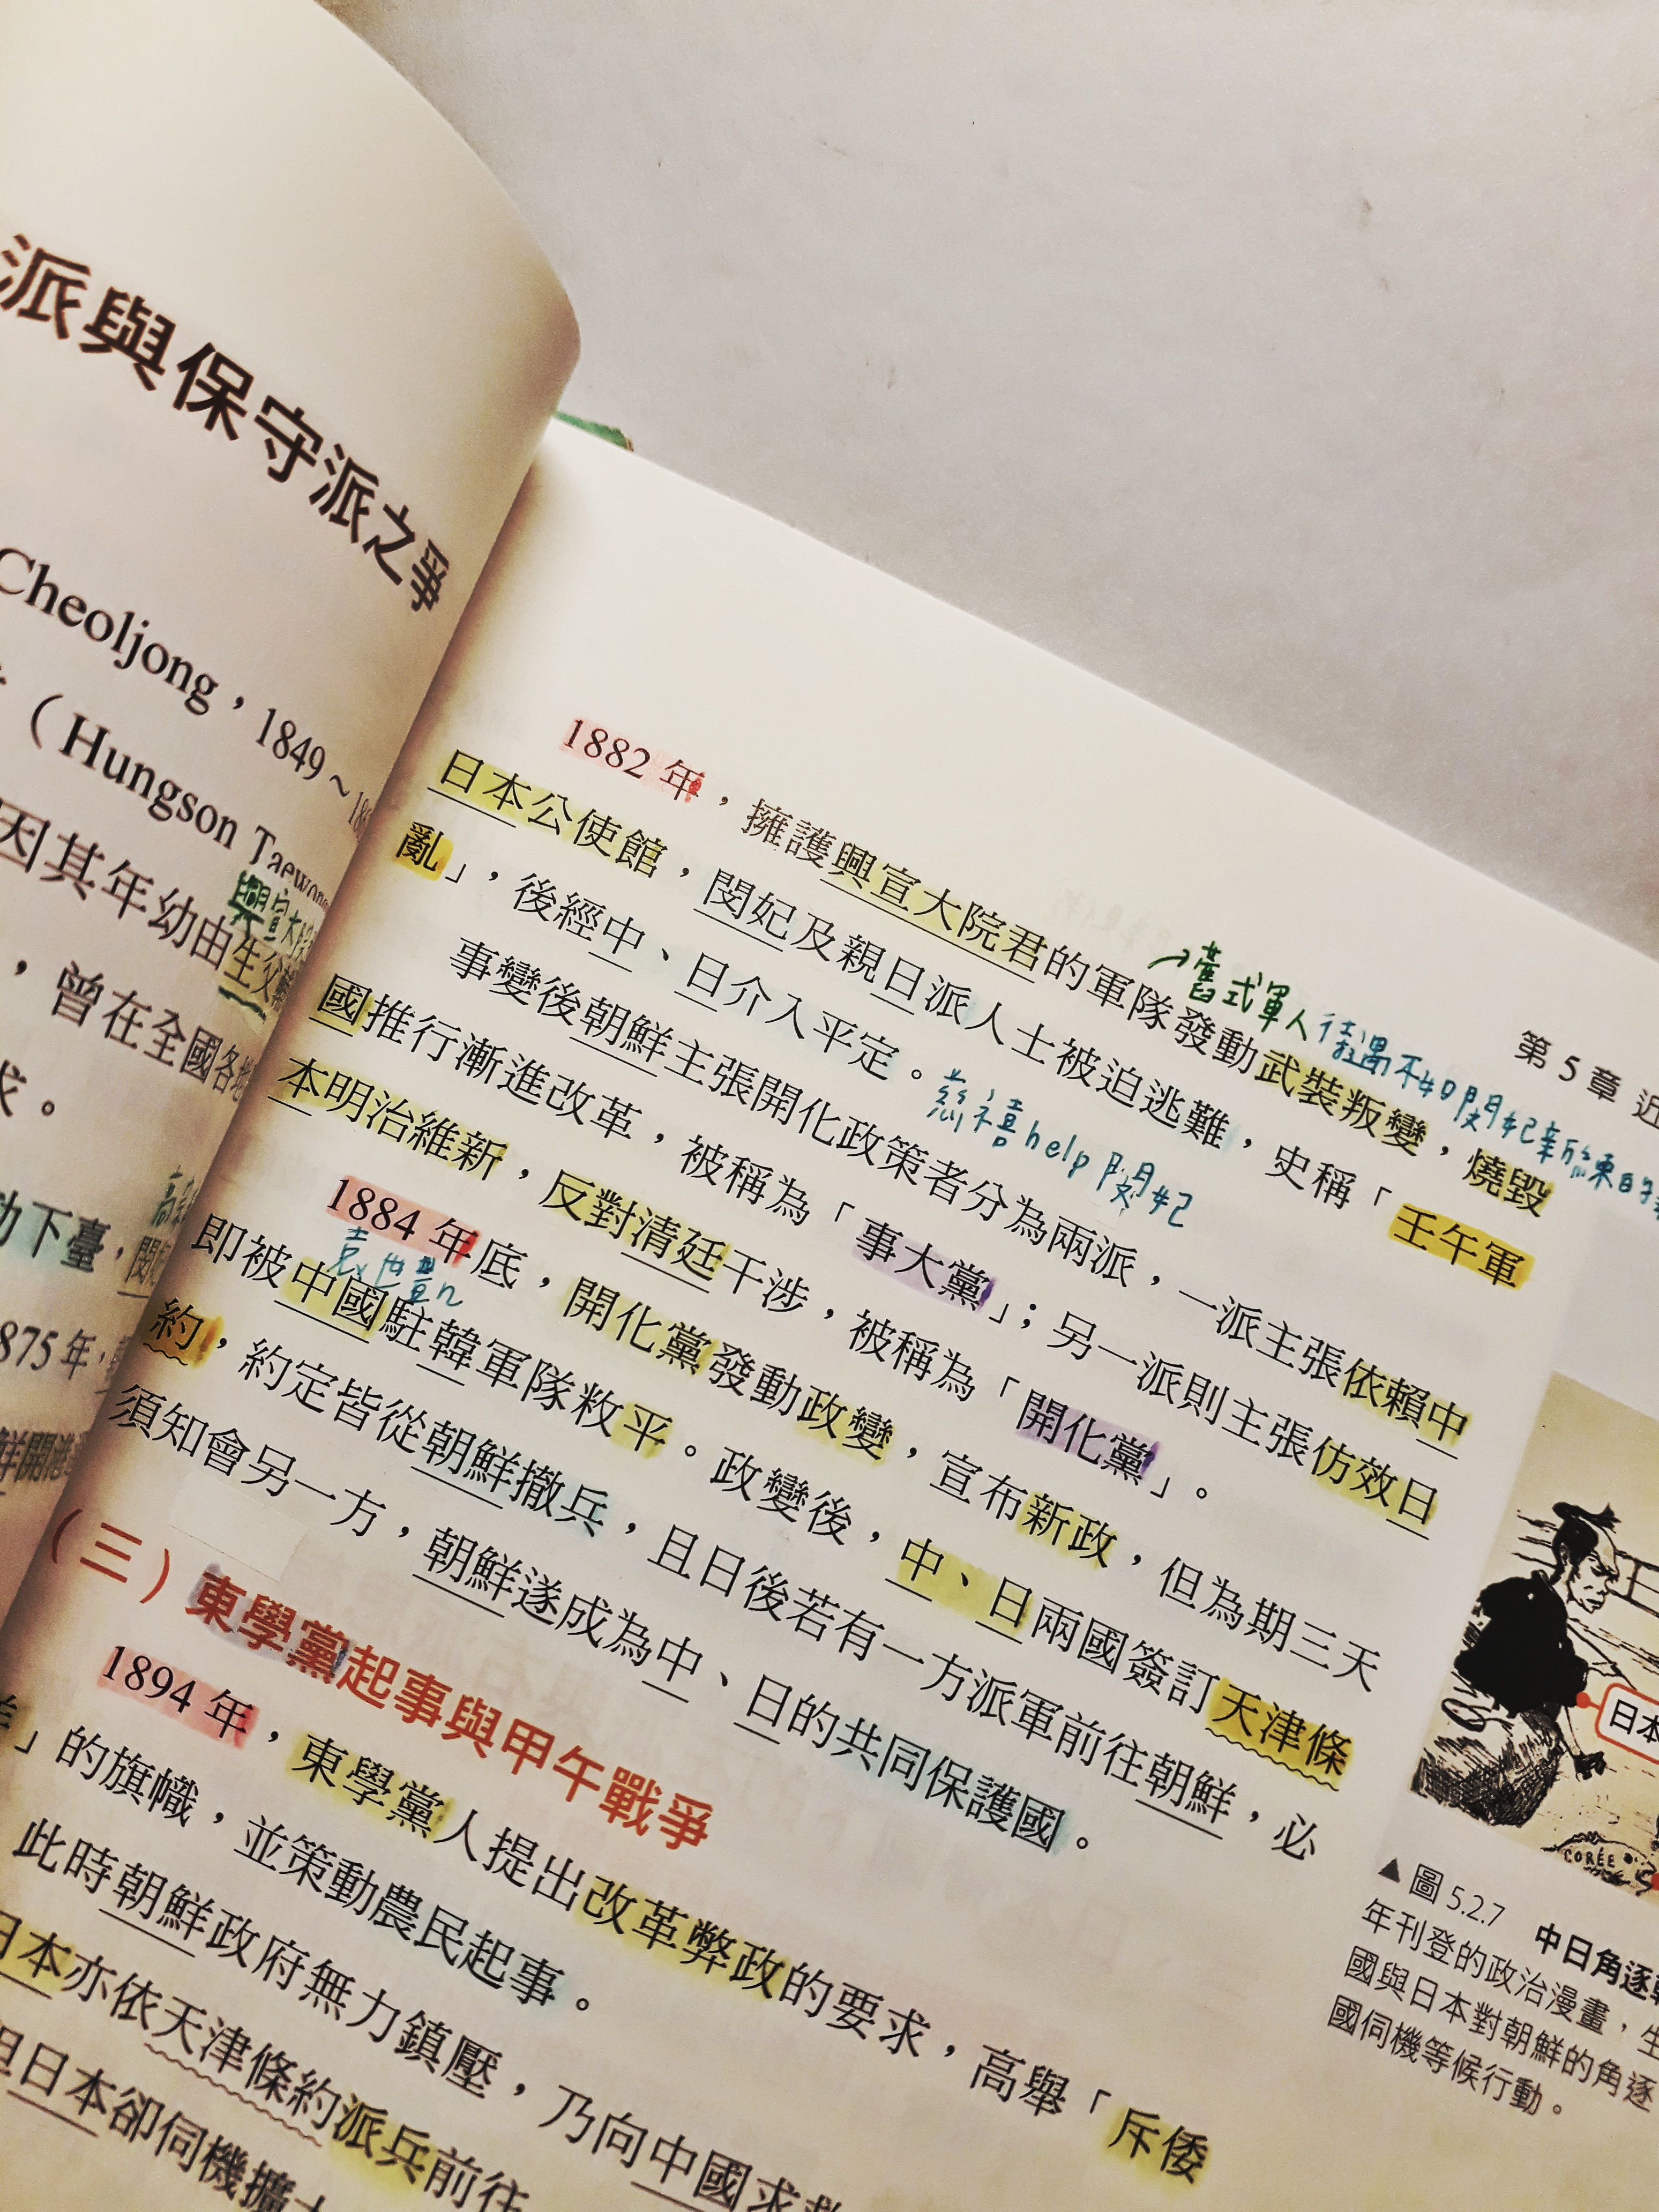 派與保守派之爭
Cheoljong，1849～
（Hungson Taewon
興宣大院
因其年幼由生父
，曾在全國各地
求。
下臺，
875年，
鮮開港
第 5 章 近
→舊式軍人待遇不如閔妃新練的
1882 年，擁護興宣大院君的軍隊發動武裝叛變，燒毀
日本公使館，閔妃及親日派人士被迫逃難，史稱「壬午軍
亂」，後經中、日介入平定。慈禧help閔妃
事變後朝鮮主張開化政策者分為兩派，一派主張依賴中
國推行漸進改革，被稱為「事大黨」；另一派則主張仿效日
本明治維新，反對清廷干涉，被稱為「開化黨」。
1884 年底，開化黨發動政變，宣布新政，但為期三天
袁世凱
即被中國駐韓軍隊敉平。政變後，中、日兩國簽訂天津條
約，約定皆從朝鮮撤兵，且日後若有一方派軍前往朝鮮，必
須知會另一方，朝鮮遂成為中、日的共同保護國。
（三）東學黨起事與甲午戰爭
1894 年，東學黨人提出改革弊政的要求，高舉「斥倭
」的旗幟，並策動農民起事。
此時朝鮮政府無力鎮壓，乃向中國求救
日本亦依天津條約派兵前往
但日本卻伺機擴大
日本
CORÉE
▲圖 5.2.7 中日角逐
年刊登的政治漫畫，生
國與日本對朝鮮的角逐
國伺機等候行動。